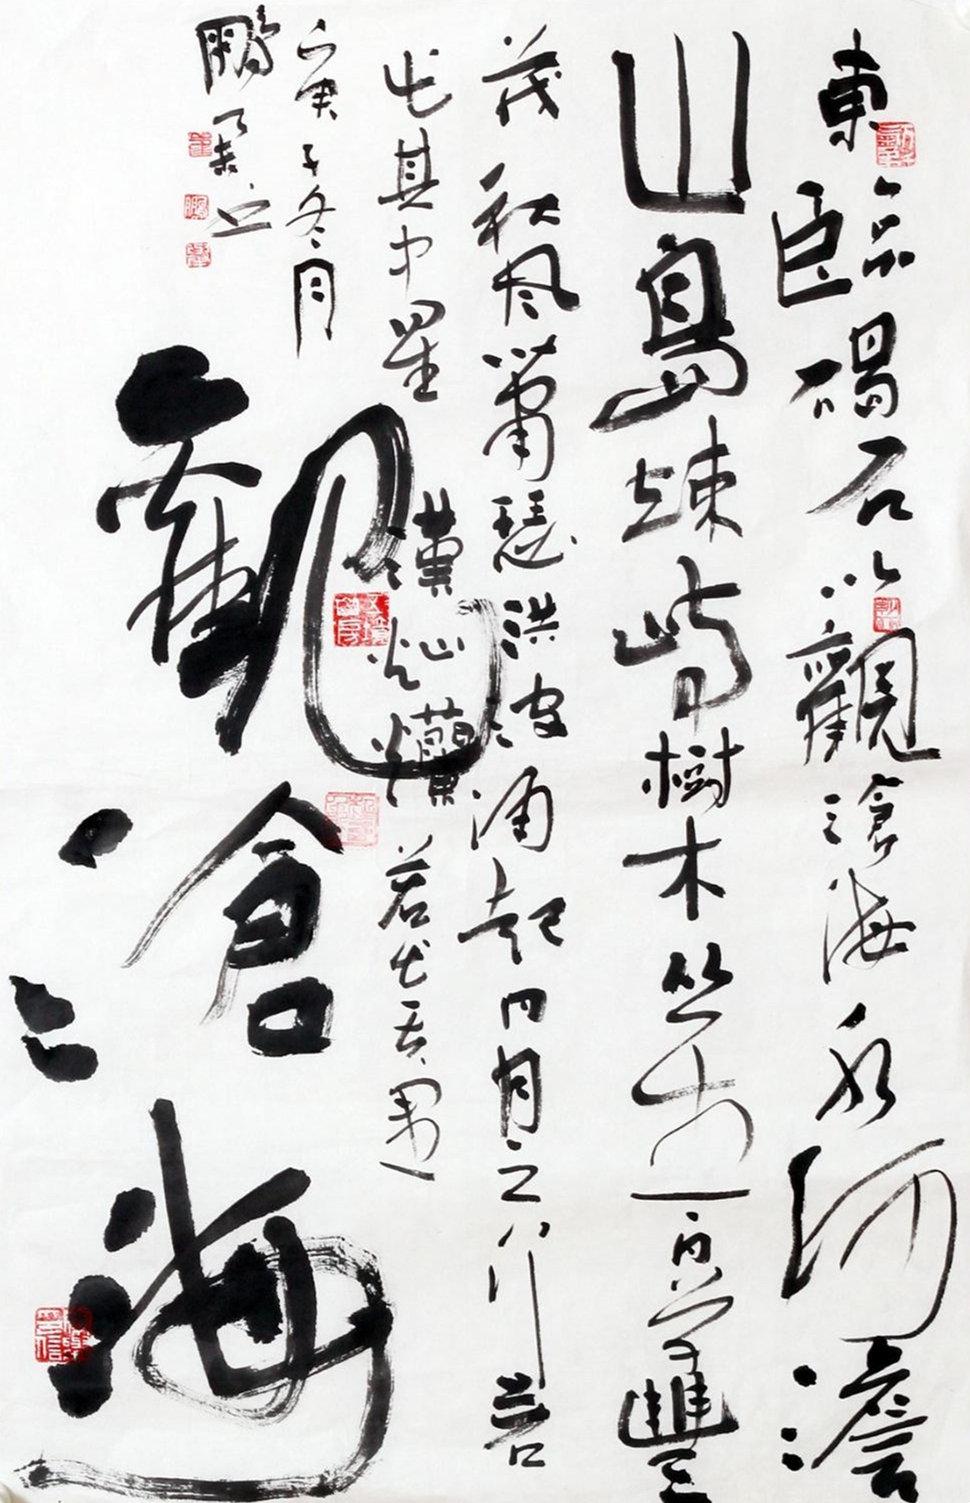 東臨碣石以觀滄海水何澹
山島竦峙樹木丛生百草豐
茂秋風蕭瑟洪波涌起日月之行若
出其中星漢灿爛若出其里
庚子冬月
鵬
觀滄海